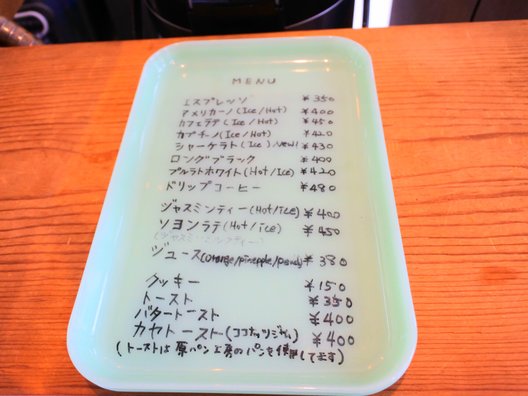 MENU
エスプレッソ ¥350
アメリカーノ (Ice/Hot) ¥400
カフェラテ (Ice/Hot) ¥450
カプチーノ (Ice/Hot) ¥420
シャーケラト (Ice) New! ¥430
ロングブラック ¥400
フルラトホワイト (Hot/Ice) ¥420
ドリップコーヒー ¥480
ジャスミンティー (Hot/Ice) ¥400
ソヨンラテ (Hot/Ice) ¥450
ジュース (orange/pineapple/ ¥380
クッキー ¥150
トースト ¥350
バタートースト ¥400
カヤトースト (ココナッツジャム) ¥400
(トーストは 原パンと のパンを使用してます)